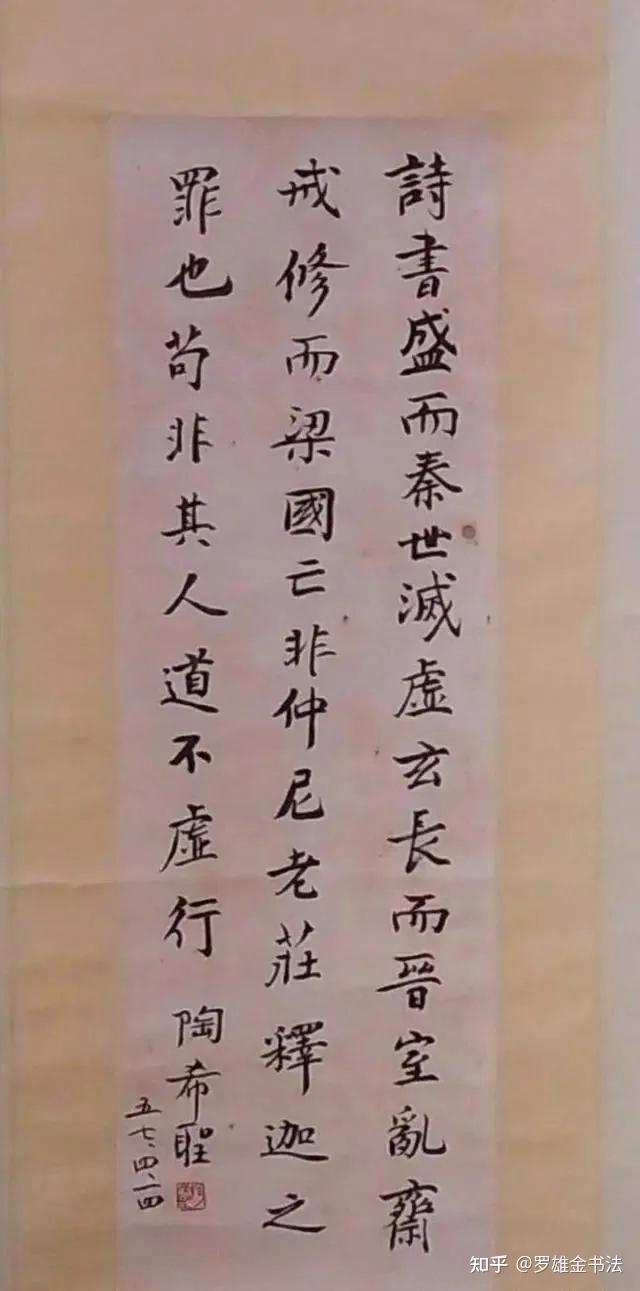 詩書盛而秦世滅虛玄長而晉室亂齋
戒修而梁國亡非仲尼老莊釋迦之
罪也苟非其人道不虛行
陶希聖
五七、四、一四
知乎 @罗雄金书法